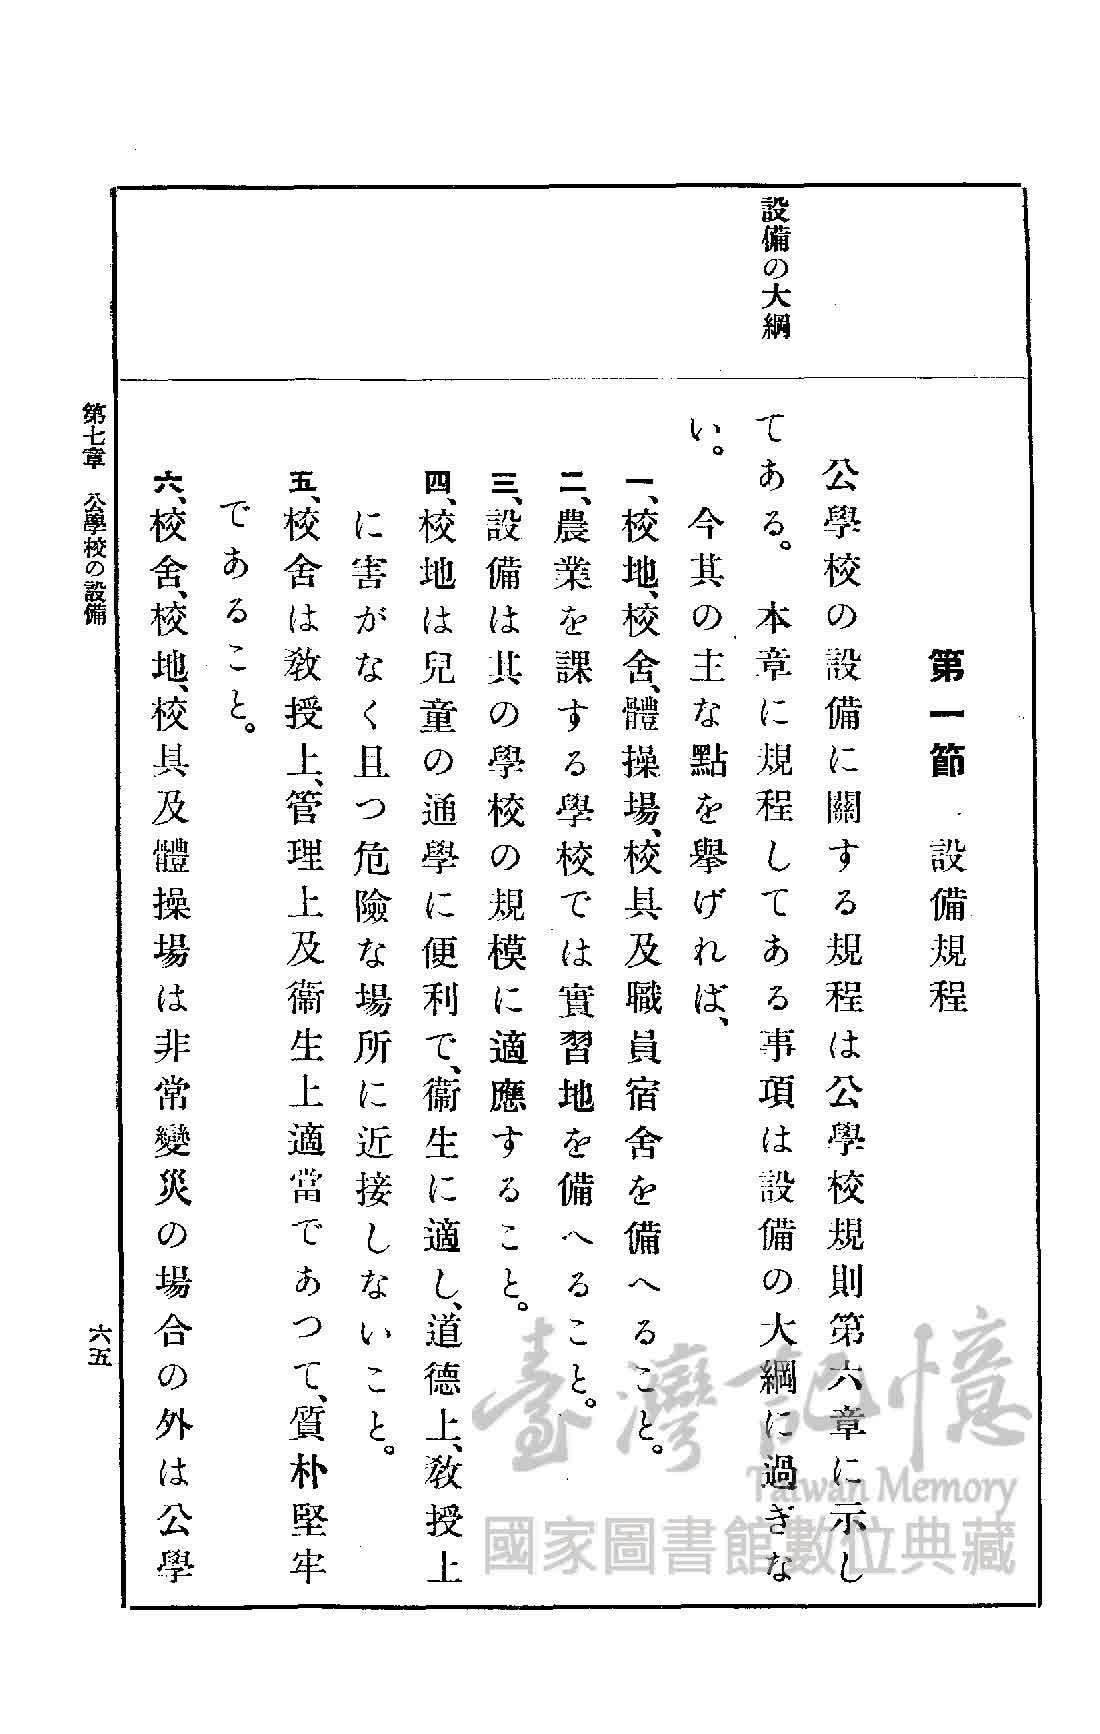 設備の大綱
第一節　設備規程
公學校の設備に關する規程は公學校規則第六章に示し
てある。本章に規程してある事項は設備の大綱に過ぎな
い。今其の主な點を擧げれば、
一、校地、校舍、體操場、校具及職員宿舍を備へること。
二、農業を課する學校では實習地を備へること。
三、設備は其の學校の規模に適應すること。
四、校地は兒童の通學に便利で、衞生に適し、道德上、敎授上
に害がなく且つ危險な場所に近接しないこと。
五、校舍は敎授上、管理上及衞生上適當であつて、質朴堅牢
であること。
六、校舍、校地、校具及體操場は非常變災の場合の外は公學
第七章　公學校の設備
六五
臺灣記憶
Taiwan Memory
國家圖書館數位典藏